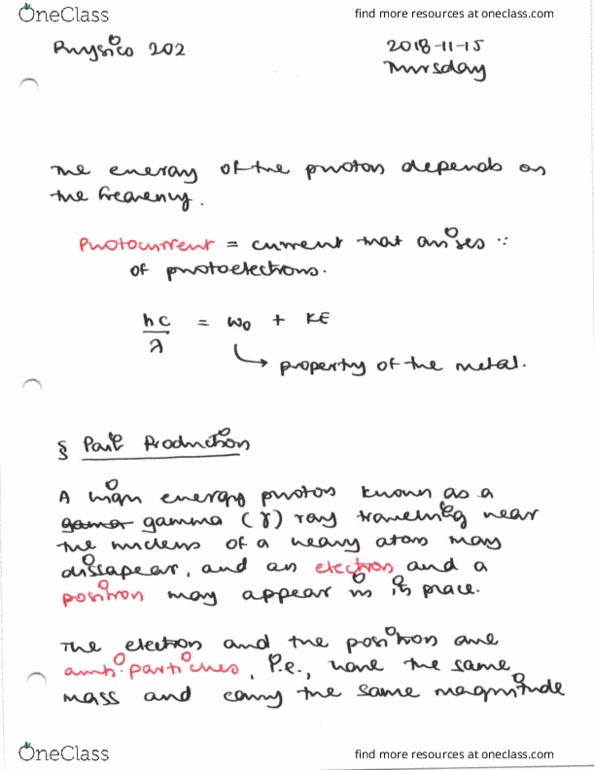 OneClass find more resources at oneclass.com
Physics 202 2018-11-15
Thursday
The energy of the photon depends on
the frequency.
Photocurrent = current that arises ∵
of photoelectrons.
hc/λ = W₀ + KE
→ property of the metal.
§ Pair Production
A high energy photon known as a
gamar gamma (γ) ray traveling near
the nucleus of a heavy atom may
dissapear, and an electron and a
positron may appear in its place.
The electron and the positron are
anti-particles, i.e., have the same
mass and carry the same magnitude
OneClass find more resources at oneclass.com